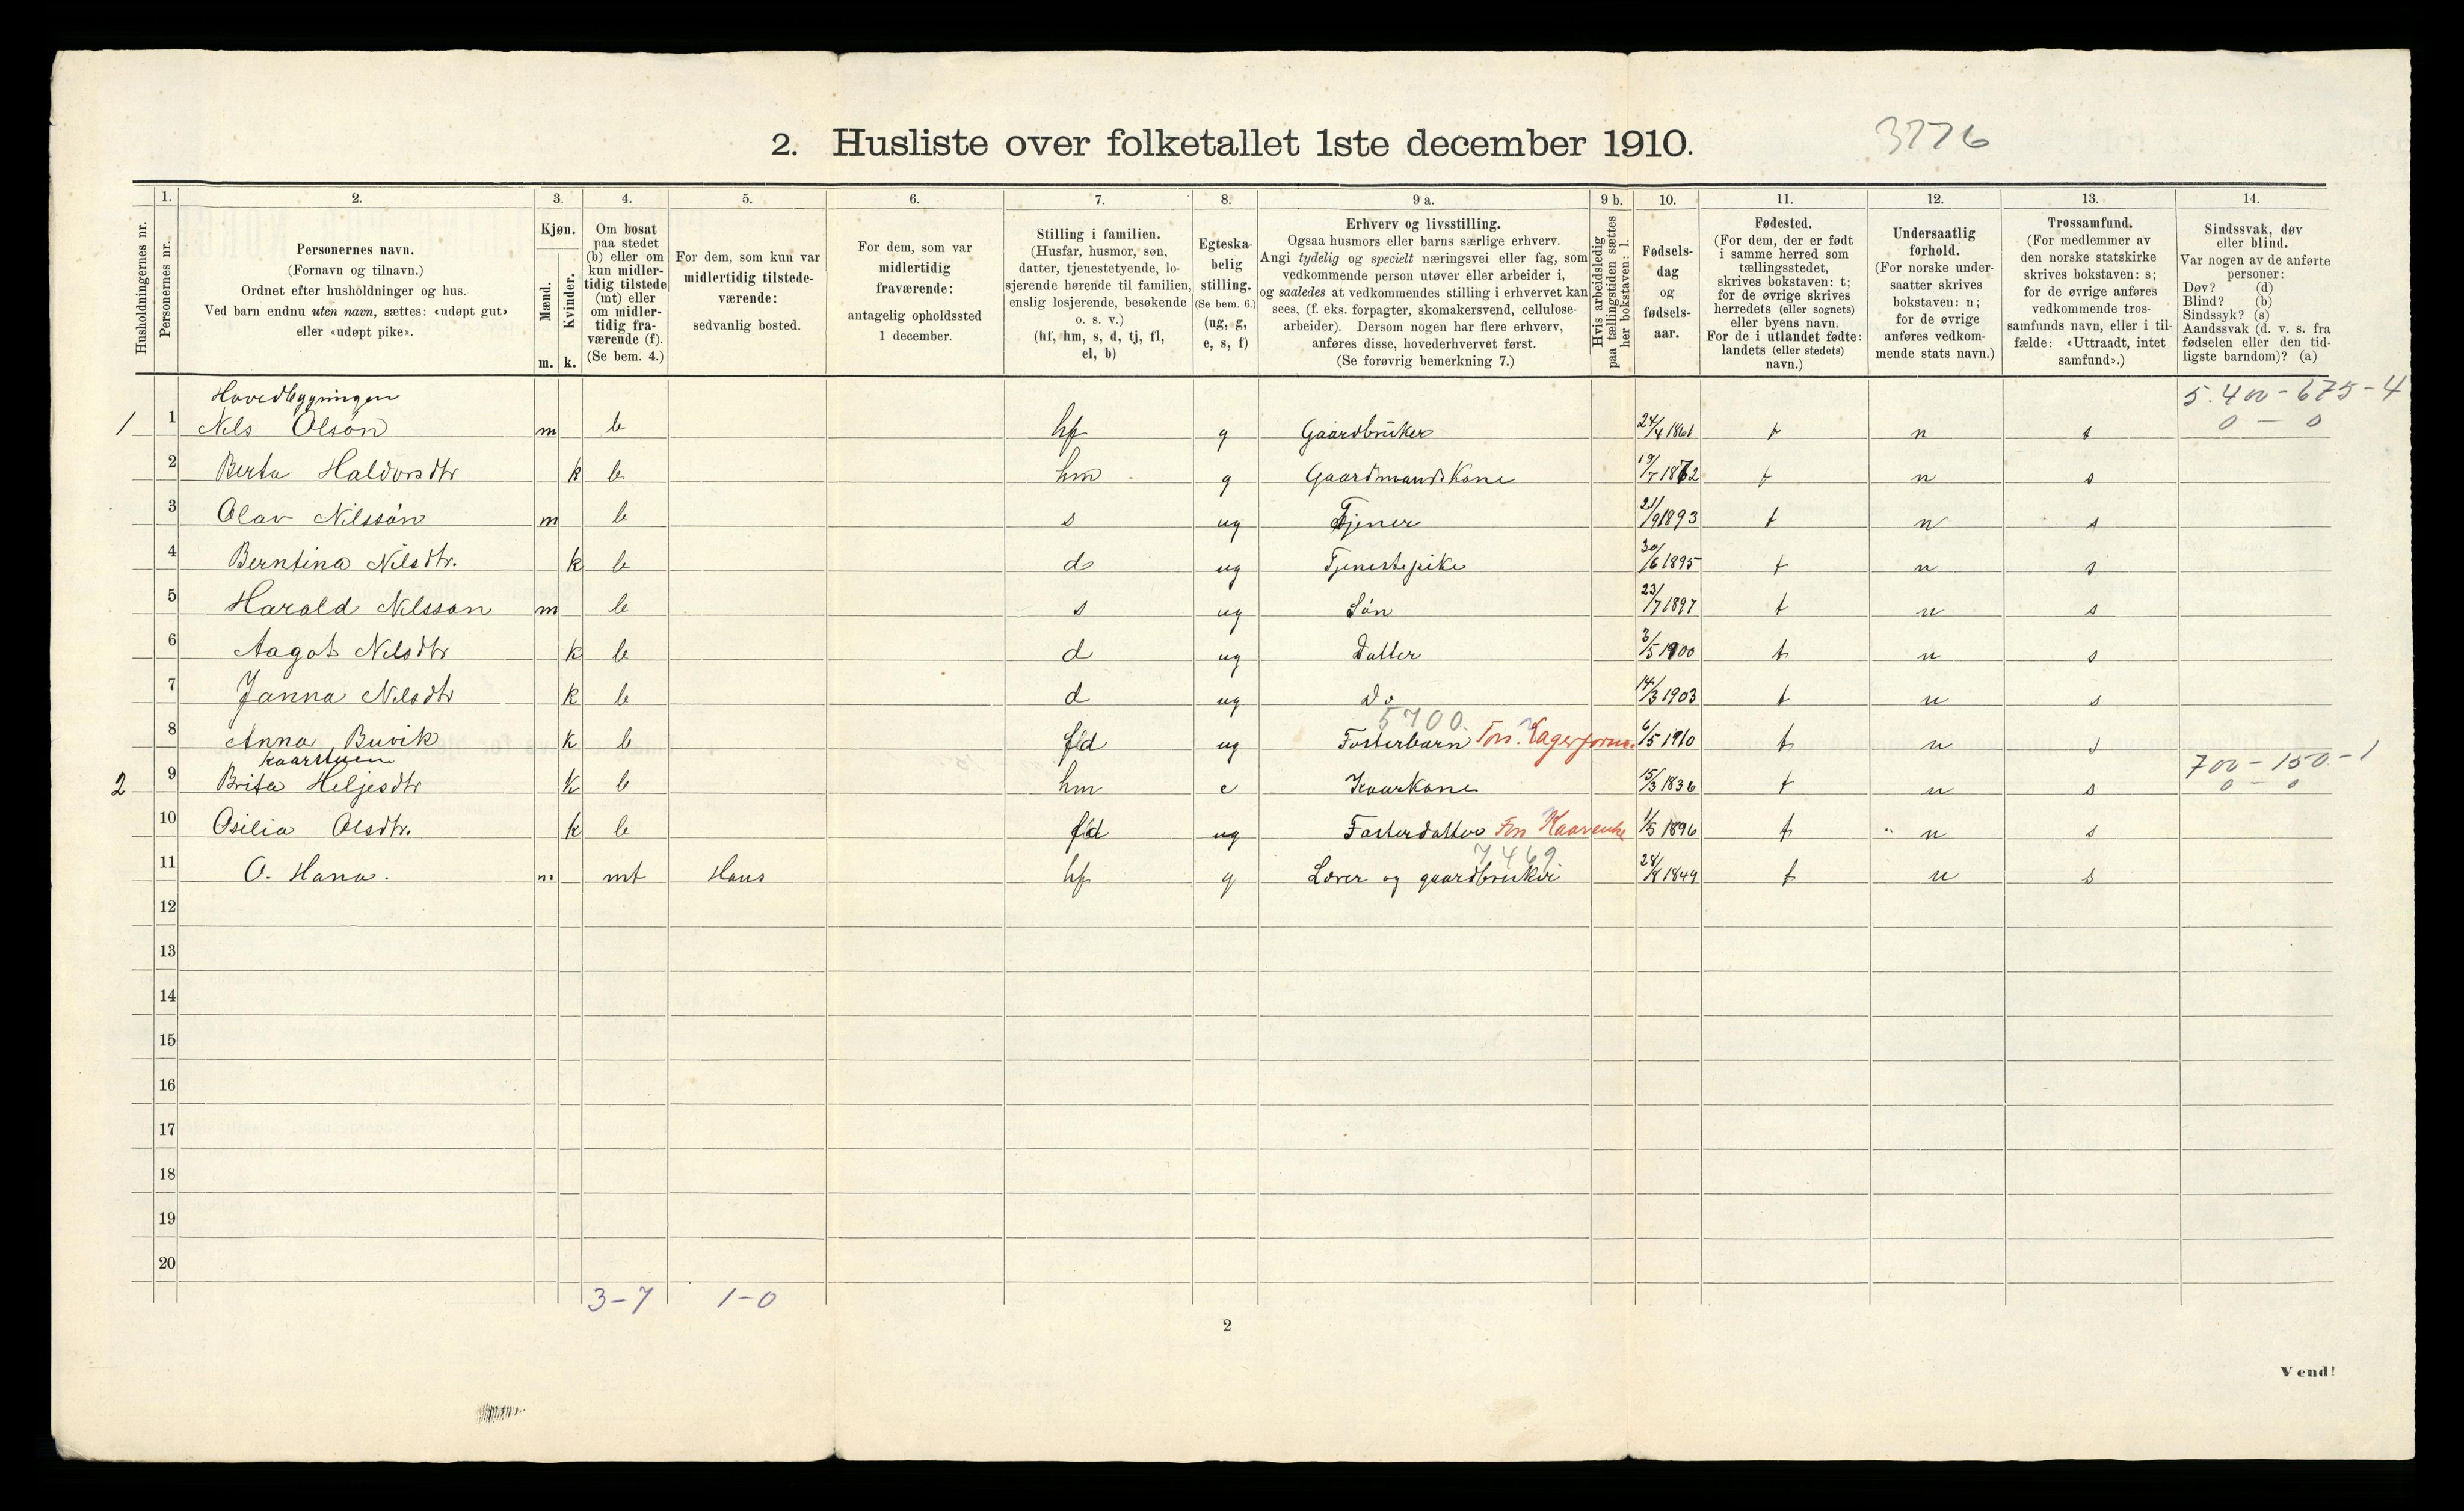 2. Husliste over folketallet 1ste december 1910.
3776
Husholdningernes nr.
1.
Personernes nr.
2.
Personernes navn.
(Fornavn og tilnavn.)
Ordnet efter husholdninger og hus.
Ved barn endnu uten navn, sættes: «udøpt gut»
eller «udøpt pike».
3.
Kjøn.
Mænd.
m.
Kvinder.
k.
4.
Om bosat
paa stedet
(b) eller om
kun midler-
tidig tilstede
(mt) eller
om midler-
tidig fra-
værende (f).
(Se bem. 4.)
5.
For dem, som kun var
midlertidig tilstede-
værende:
sedvanlig bosted.
6.
For dem, som var
midlertidig
fraværende:
antagelig opholdssted
1 december.
7.
Stilling i familien.
(Husfar, husmor, søn,
datter, tjenestetyende, lo-
sjerende hørende til familien,
enslig losjerende, besøkende
o. s. v.)
(hf, hm, s, d, tj, fl,
el, b)
8.
Egteska-
belig
stilling.
(Se bem. 6.)
(ug, g,
e, s, f)
9 a.
Erhverv og livsstilling.
Ogsaa husmors eller barns særlige erhverv.
Angi tydelig og specielt næringsvei eller fag, som
vedkommende person utøver eller arbeider i,
og saaledes at vedkommendes stilling i erhvervet kan
sees, (f. eks. forpagter, skomakersvend, cellulose-
arbeider). Dersom nogen har flere erhverv,
anføres disse, hovederhvervet først.
(Se forøvrig bemerkning 7.)
9 b.
Hvis arbeidsledig
paa tællingstiden sættes
her bokstaven: l.
10.
Fødsels-
dag
og
fødsels-
aar.
11.
Fødested.
(For dem, der er født
i samme herred som
tællingsstedet,
skrives bokstaven: t;
for de øvrige skrives
herredets (eller sognets)
eller byens navn.
For de i utlandet fødte:
landets (eller stedets)
navn.)
12.
Undersaatlig
forhold.
(For norske under-
saatter skrives
bokstaven: n;
for de øvrige
anføres vedkom-
mende stats navn.)
13.
Trossamfund.
(For medlemmer av
den norske statskirke
skrives bokstaven: s;
for de øvrige anføres
vedkommende tros-
samfunds navn, eller i til-
fælde: «Uttraadt, intet
samfund».)
14.
Sindssvak, døv
eller blind.
Var nogen av de anførte
personer:
Døv? (d)
Blind? (b)
Sindssyk? (s)
Aandssvak (d. v. s. fra
fødselen eller den tid-
ligste barndom)? (a)
Hovedbygningen
5.400-675-4
1 1 Nils Olson m b hf g Gaardbruker 24/4 1861 t n s 0 - 0
2 Berta Haldorsdtr k b hm g Gaardmandskone 19/7 1862 t n s
3 Olav Nilsson m b s ug Tjener 21/9 1893 t n s
4 Berntina Nilsdtr. k b d ug Tjenestepike 30/6 1895 t n s
5 Harald Nilsson m b s ug Søn 23/7 1897 t n s
6 Aagot Nilsdtr k b d ug Datter 3/5 1900 t n s
7 Janna Nilsdtr k b d ug Do 14/3 1903 t n s
5700.
8 Anna Buvik k b fd ug Fosterbarn 6/5 1910 t n s
Kaarstuen
700-150-1
2 9 Brita Heljesdtr k b hm e Kaarkone 15/3 1836 t n s 0 - 0
10 Osilia Olsdtr. k b fd ug Fosterdatter 1/5 1896 t n s
7469
11 O. Hana. m mt Haus hf g Lærer og gaardbruker 28/8 1849 t n s
12
13
14
15
16
17
18
19
20
3-7 1-0
2
Vend!